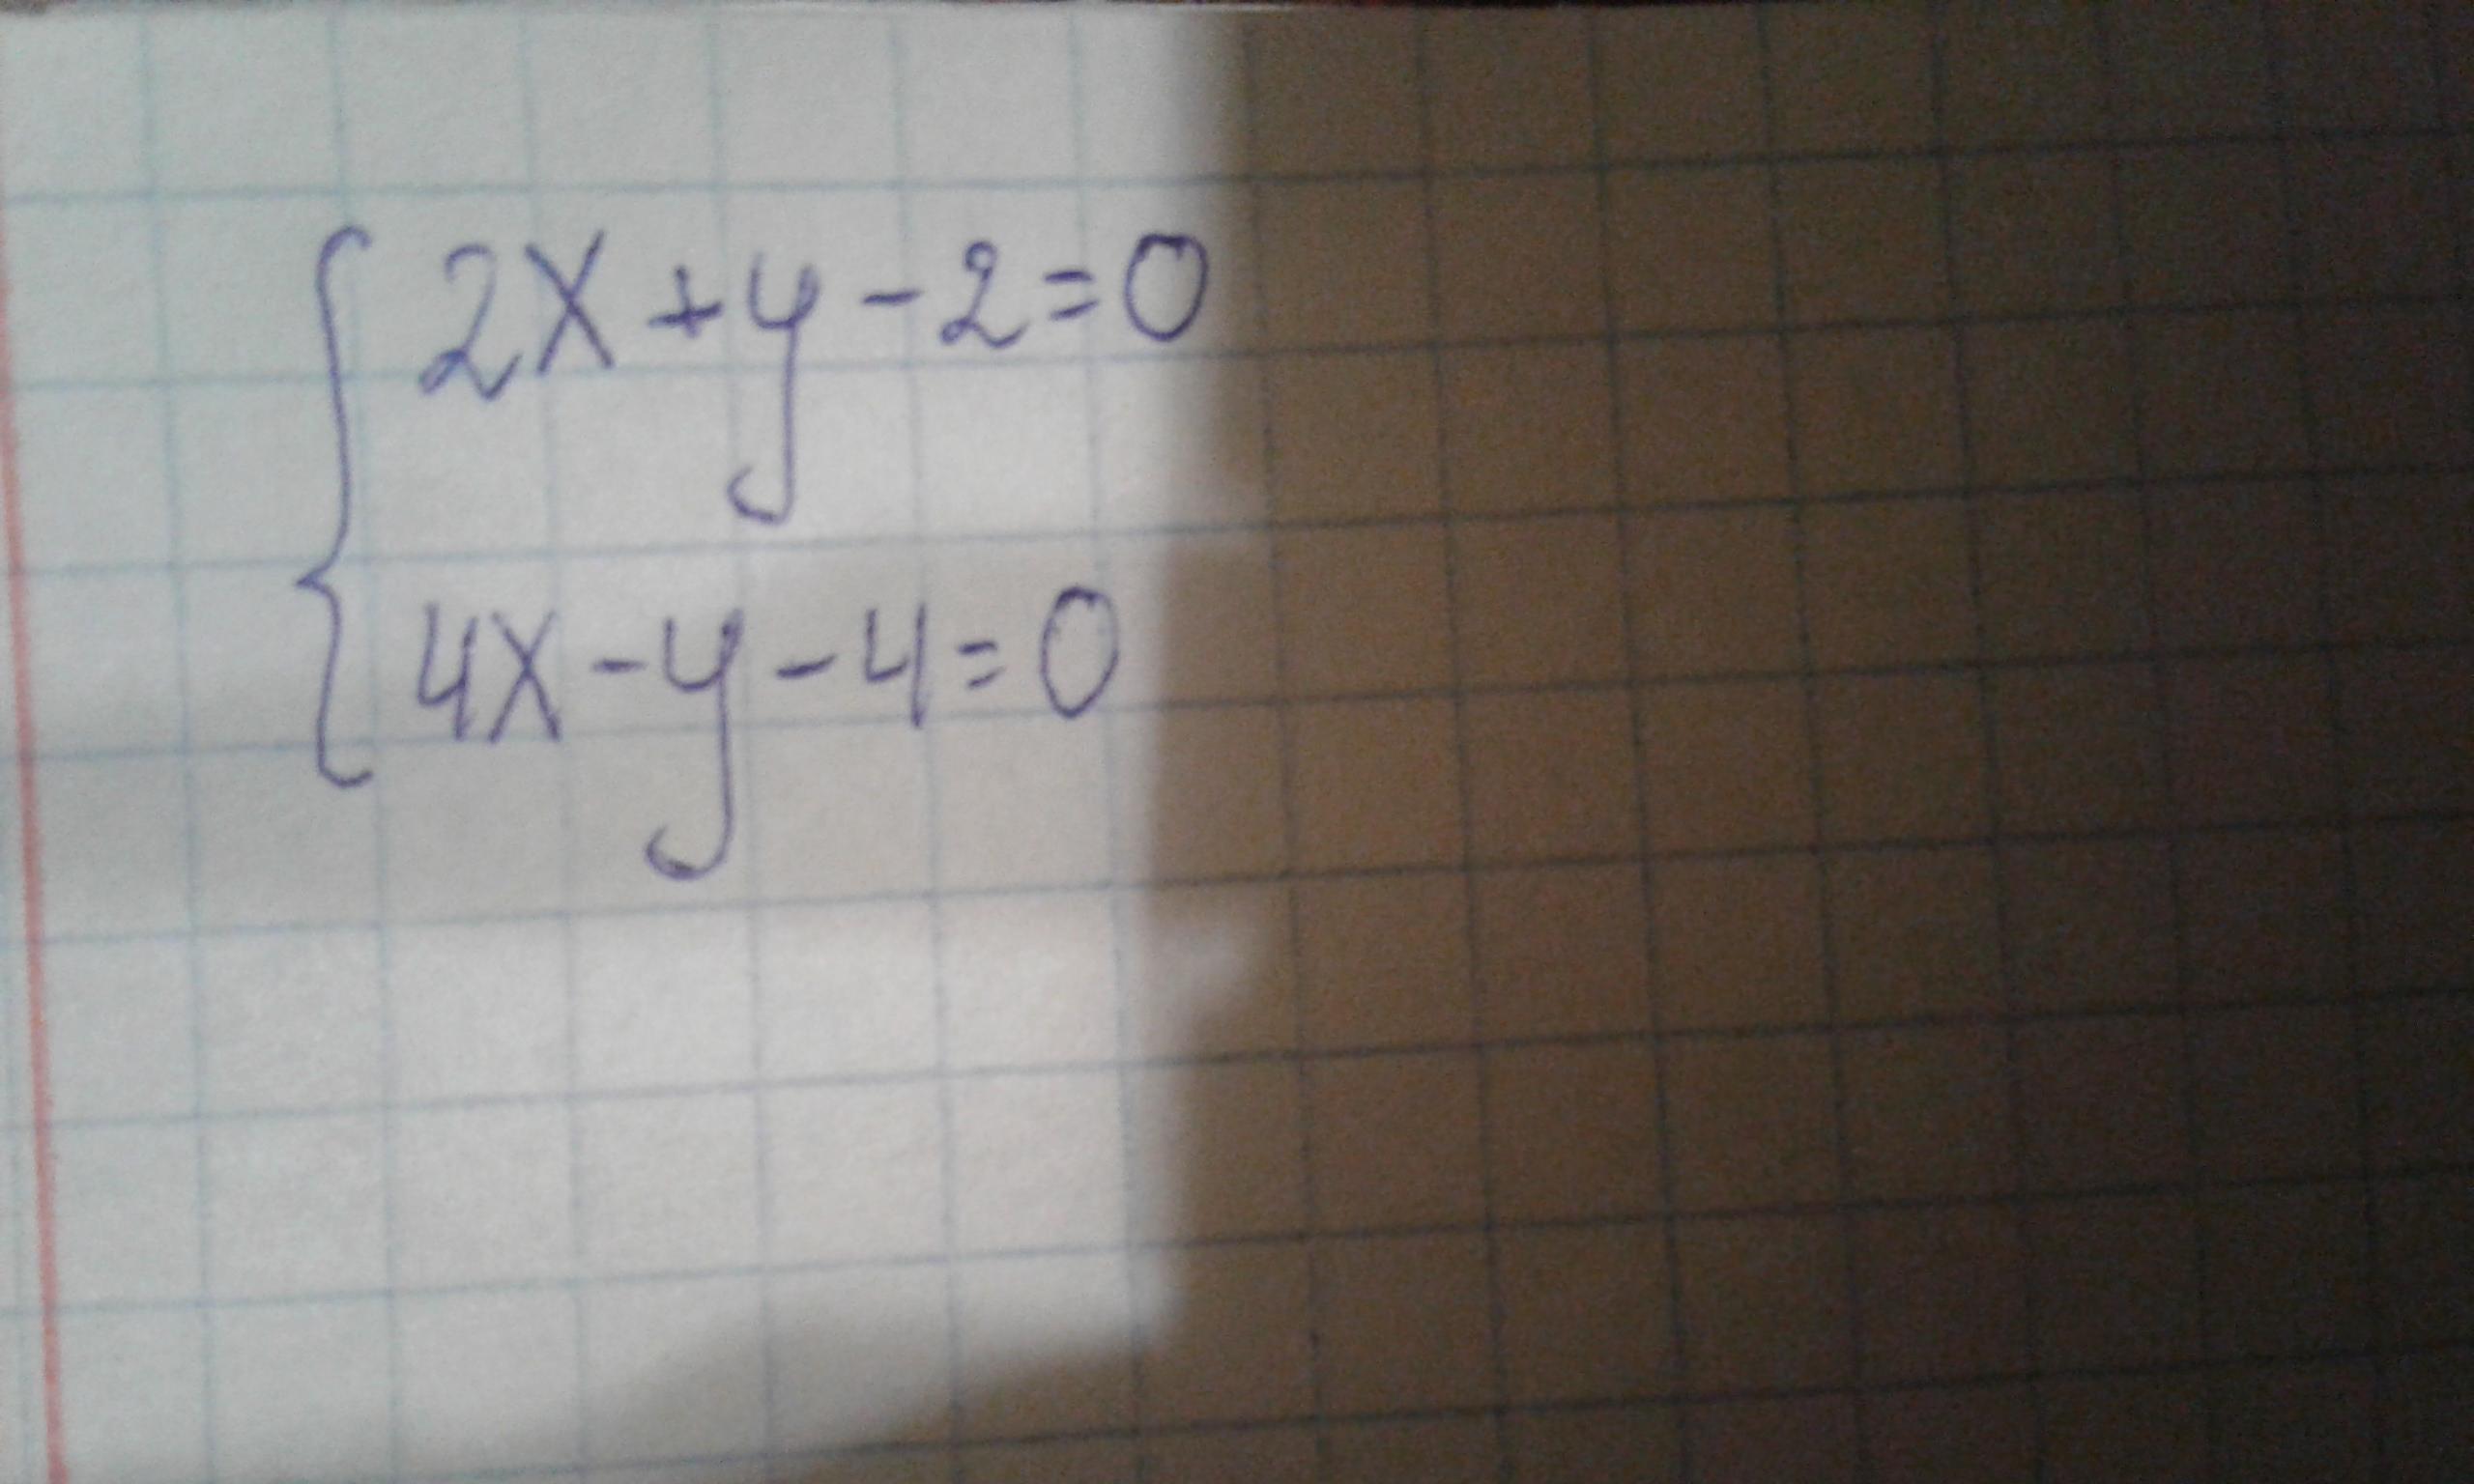 2x+y-2=0
4x-y-4=0